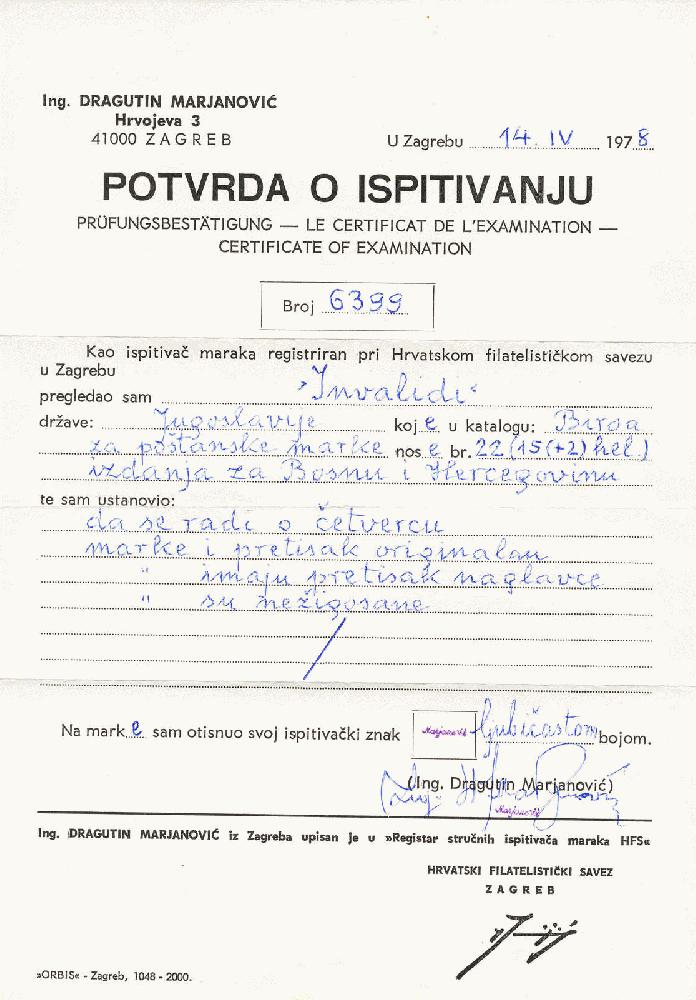 Ing. DRAGUTIN MARJANOVIĆ
Hrvojeva 3
41000 ZAGREB
U Zagrebu 14. IV 1978
POTVRDA O ISPITIVANJU
PRÜFUNGSBESTÄTIGUNG — LE CERTIFICAT DE L'EXAMINATION —
CERTIFICATE OF EXAMINATION
Broj 6399
Kao ispitivač maraka registriran pri Hrvatskom filatelističkom savezu
u Zagrebu
pregledao sam "Invalidi"
države: Jugoslavije koje u katalogu:
za poštanske marke nose br. 22 (15(+2) hel.)
izdanja za Bosnu i Hercegovinu
te sam ustanovio:
da se radi o četvercu
marke i pretisak originalan
" imaju pretisak naglavce
" su nežigosane
Na marke sam otisnuo svoj ispitivački znak Marjanović ljubičastom bojom.
(Ing. Dragutin Marjanović)
Marjanović
Ing. DRAGUTIN MARJANOVIĆ iz Zagreba upisan je u »Registar stručnih ispitivača maraka HFS«
HRVATSKI FILATELISTIČKI SAVEZ
ZAGREB
»ORBIS« - Zagreb, 1048 - 2000.